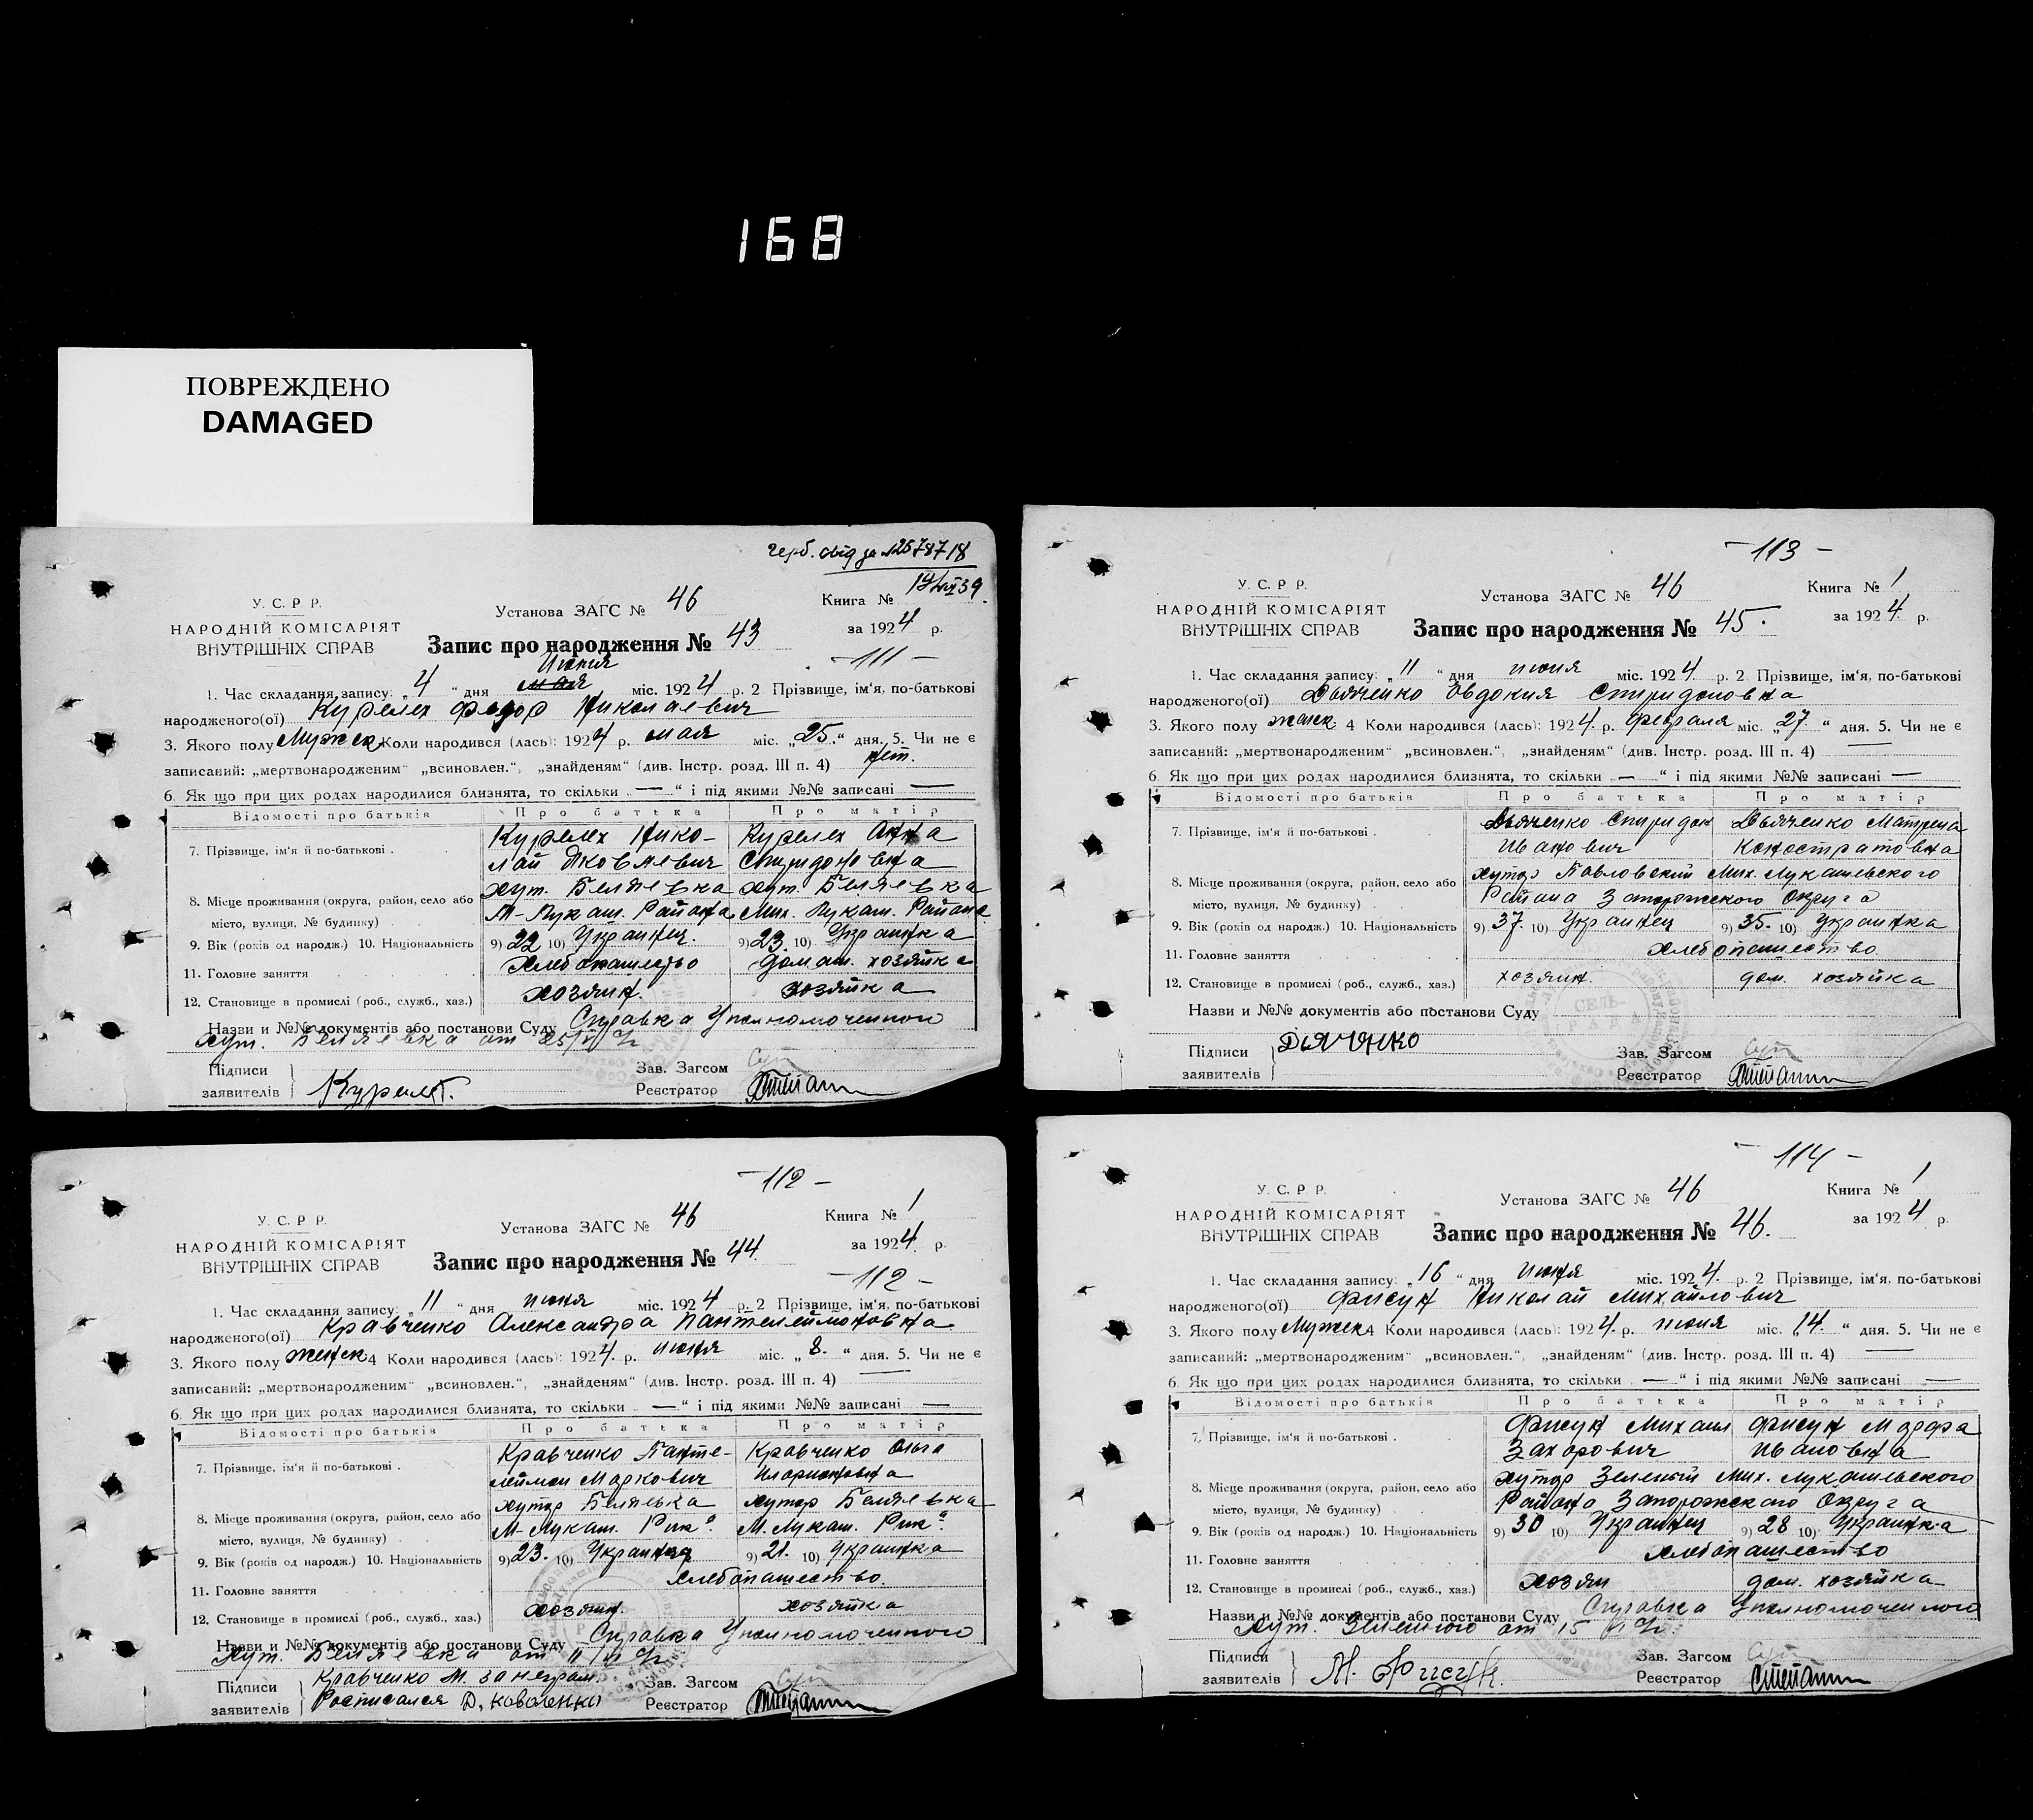 168
ПОВРЕЖДЕНО
DAMAGED
герб. свід за №2578718
У. С. Р Р.
НАРОДНІЙ КОМІСАРІЯТ
ВНУТРІШНІХ СПРАВ
Установа ЗАГС № 46
Запис про народження № 43
Книга №
за 1924 р.
- 111 -
1. Час складання запису: „4“ дня мая Июня міс. 1924 р. 2 Прізвище, ім'я, по-батькові
народженого(ої) Курелех Федор Николаевич
3. Якого полу Мужск. Коли народився (лась): 1924 р. мая міс. „25.“ дня. 5. Чи не є
записаний: „мертвонародженим“ „всиновлен.“, „знайденям“ (див. Інстр. розд. III п. 4) нет.
6. Як що при цих родах народилися близнята, то скільки „—“ і під якими №№ записані —
Відомости про батьків Про батька Про матір
7. Прізвище, ім'я й по-батькові . Курелех Нико- Курелех Анна
лай Яковлевич Спиридоновна
8. Місце проживання (округа, район, село або хут. Беляевка хут. Беляевка
місто, вулиця, № будинку) М-Лукаш. Района Мих. Лукаш. Района
9. Вік (років од народж.) 10. Національність 9) 22 10) Украинец. 9) 23. 10) Украинка
11. Головне заняття Хлебопашество домаш. хозяйка
12. Становище в промислі (роб., служб., хаз.) хозяин. хозяйка
Назви и №№ документів або постанови Суду Справка Уполномоченного
Хут. Беляевка от 25/
Підписи
заявителів Курелех.
Зав. Загсом
Реєстратор
- 112 -
У. С. Р Р.
НАРОДНІЙ КОМІСАРІЯТ
ВНУТРІШНІХ СПРАВ
Установа ЗАГС № 46
Запис про народження № 44.
Книга № 1
за 1924 р.
- 112 -
1. Час складання запису: „11“ дня июня міс. 1924 р. 2 Прізвище, ім'я, по-батькові
народженого(ої) Кравченко Александра Пантелеймоновна
3. Якого полу женск 4 Коли народився (лась): 1924. р. июня міс. „8.“ дня. 5. Чи не є
записаний: „мертвонародженим“ „всиновлен.“, „знайденям“ (див. Інстр. розд. III п. 4) —
6. Як що при цих родах народилися близнята, то скільки „—“ і під якими №№ записані —
Відомости про батьків Про батька Про матір
7. Прізвище, ім'я й по-батькові . Кравченко Панте- Кравченко Ольга
леймон Маркович Иларионовна
8. Місце проживання (округа, район, село або хутор Беляевка хутор Беляевка
місто, вулиця, № будинку) М-Лукаш. Рик". М. Лукаш. Рик".
9. Вік (років од народж.) 10. Національність 9) 23. 10) Украинец 9) 21. 10) Украинка
11. Головне заняття хлебопашество.
12. Становище в промислі (роб., служб., хаз.) хозяин. хозяйка
Назви и №№ документів або постанови Суду Справка Уполномоченного
Хут. Беляевка от 11/
Підписи Кравченко М. за неграм.
заявителів Росписался Д. Коваленко
Зав. Загсом
Реєстратор
- 113 -
У. С. Р Р.
НАРОДНІЙ КОМІСАРІЯТ
ВНУТРІШНІХ СПРАВ
Установа ЗАГС № 46
Запис про народження № 45.
Книга № 1
за 1924 р.
1. Час складання запису: „11“ дня июня міс. 1924 р. 2 Прізвище, ім'я, по-батькові
народженого(ої) Дьяченко Овдокия Спиридоновна
3. Якого полу женск. 4 Коли народився (лась): 1924. р. февраля міс. „27.“ дня. 5. Чи не є
записаний: „мертвонародженим“ „всиновлен.“, „знайденям“ (див. Інстр. розд. III п. 4) —
6. Як що при цих родах народилися близнята, то скільки „—“ і під якими №№ записані —
Відомости про батьків Про батька Про матір
7. Прізвище, ім'я й по-батькові . Дьяченко Спиридон Дьяченко Матрена
Иванович Каностратовна
8. Місце проживання (округа, район, село або хутор Павловский Мих. Лукашевского
місто, вулиця, № будинку) Района Запорожского Округа
9. Вік (років од народж.) 10. Національність 9) 37. 10) Украинец 9) 35. 10) Украинка
11. Головне заняття хлебопашество.
12. Становище в промислі (роб., служб., хаз.) хозяин. дом. хозяйка
Назви и №№ документів або постанови Суду
СЕЛЬ-
РАДА
Підписи
заявителів Дьяченко
Зав. Загсом
Реєстратор
- 114 -
У. С. Р Р.
НАРОДНІЙ КОМІСАРІЯТ
ВНУТРІШНІХ СПРАВ
Установа ЗАГС № 46
Запис про народження № 46.
Книга № 1
за 1924 р.
1. Час складання запису: „16“ дня июня міс. 1924. р. 2 Прізвище, ім'я, по-батькові
народженого(ої) Фисун Николай Михайлович
3. Якого полу Мужск. 4 Коли народився (лась): 1924. р. июня міс. „14.“ дня. 5. Чи не є
записаний: „мертвонародженим“ „всиновлен.“, „знайденям“ (див. Інстр. розд. III п. 4) —
6. Як що при цих родах народилися близнята, то скільки „—“ і під якими №№ записані —
Відомости про батьків Про батька Про матір
7. Прізвище, ім'я й по-батькові . Фисун Михаил Фисун Марфа
Захарович Ивановна
8. Місце проживання (округа, район, село або хутор Зеленый Мих. Лукашевского
місто, вулиця, № будинку) Района Запорожского Округа
9. Вік (років од народж.) 10. Національність 9) 30 10) Украинец 9) 28 10) Украинка
11. Головне заняття хлебопашество
12. Становище в промислі (роб., служб., хаз.) хозяин дом. хозяйка
Назви и №№ документів або постанови Суду Справка Уполномоченного
Хут. Зеленого от 15
Підписи
заявителів М. Фисун.
Зав. Загсом
Реєстратор